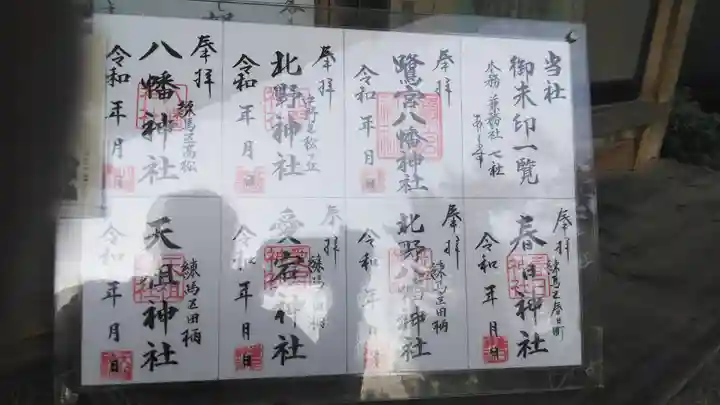 当社
御朱印一覧
本務 兼務社 七社
奉拝
鷺宮八幡神社
令和 年 月 日
奉拝
中野区松ヶ丘
北野神社
令和 年 月 日
奉拝
練馬区高松
八幡神社
令和 年 月 日
奉拝
練馬区春日町
春日神社
令和 年 月 日
奉拝
練馬区田柄
北野八幡神社
令和 年 月 日
奉拝
練馬区田柄
愛宕神社
令和 年 月 日
奉拝
練馬区田柄
天祖神社
令和 年 月 日